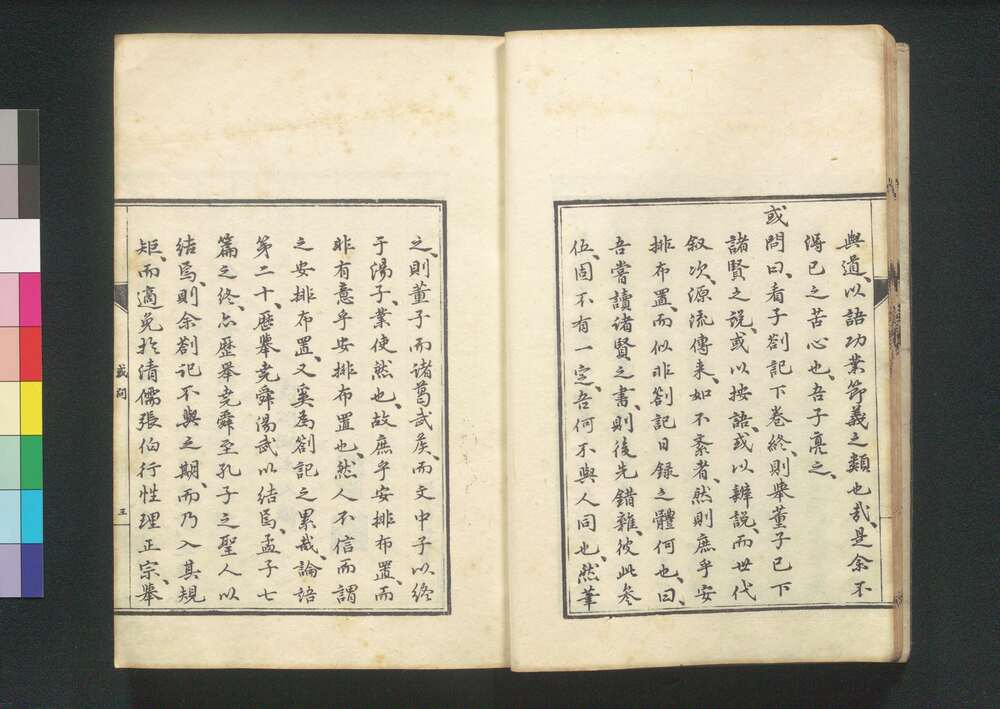 與道以語功業節義之類也哉、是余不
得已之苦心也、吾子亮之、
或問曰、看子劄記下卷終、則舉董子已下
諸賢之說、或以按語、或以辨說、而世代
敘次、源流傳來、如不紊者、然則庶乎安
排布置、而似非劄記日録之體何也、曰、
吾嘗讀諸賢之書、則後先錯雜、彼此參
伍、固不有一定、吾何不與人同也、然筆
之、則董子而諸葛武矦、而文中子以終
于湯子、業使然也、故庶乎安排布置、而
非有意乎安排布置也、然人不信而謂
之安排布置、又奚為劄記之累哉、論語
第二十、歷舉堯舜湯武以結焉、孟子七
篇之終、亦歷舉堯舜至孔子之聖人以
結焉、則余劄記不與之期、而乃入其規
矩、而適免於清儒張伯行性理正宗、舉
或問
五